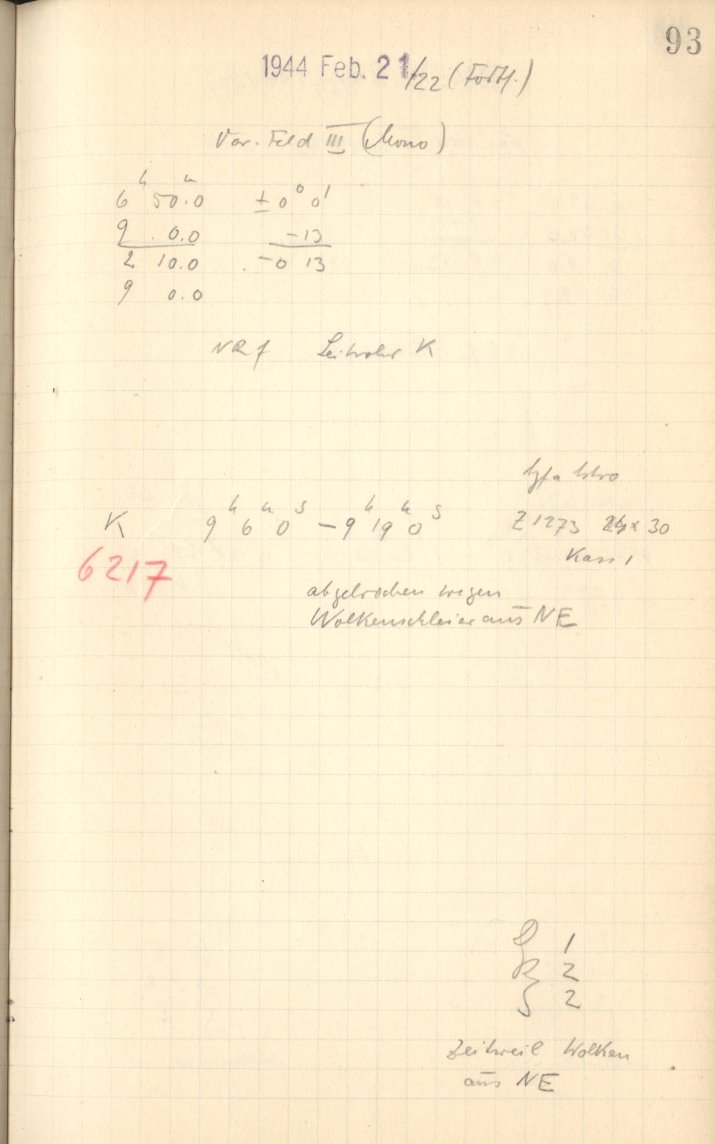 93
1944 Feb. 21/22 (Forts.)
Var. Feld III (Mono)
6ʰ 50ᵐ.0 ± 0° 0'
9 0.0 -13
2 10.0 -0 13
9 0.0
NRf Leitrohr K
Agfa Astro
K 9ʰ 6ᵐ 0ˢ – 9ʰ 19ᵐ 0ˢ Z1273 24x30
6217 Kass 1
abgebrochen wegen
Wolkenschleier aus NE
D 1
R 2
S 2
Zeitweil Wolken
aus NE